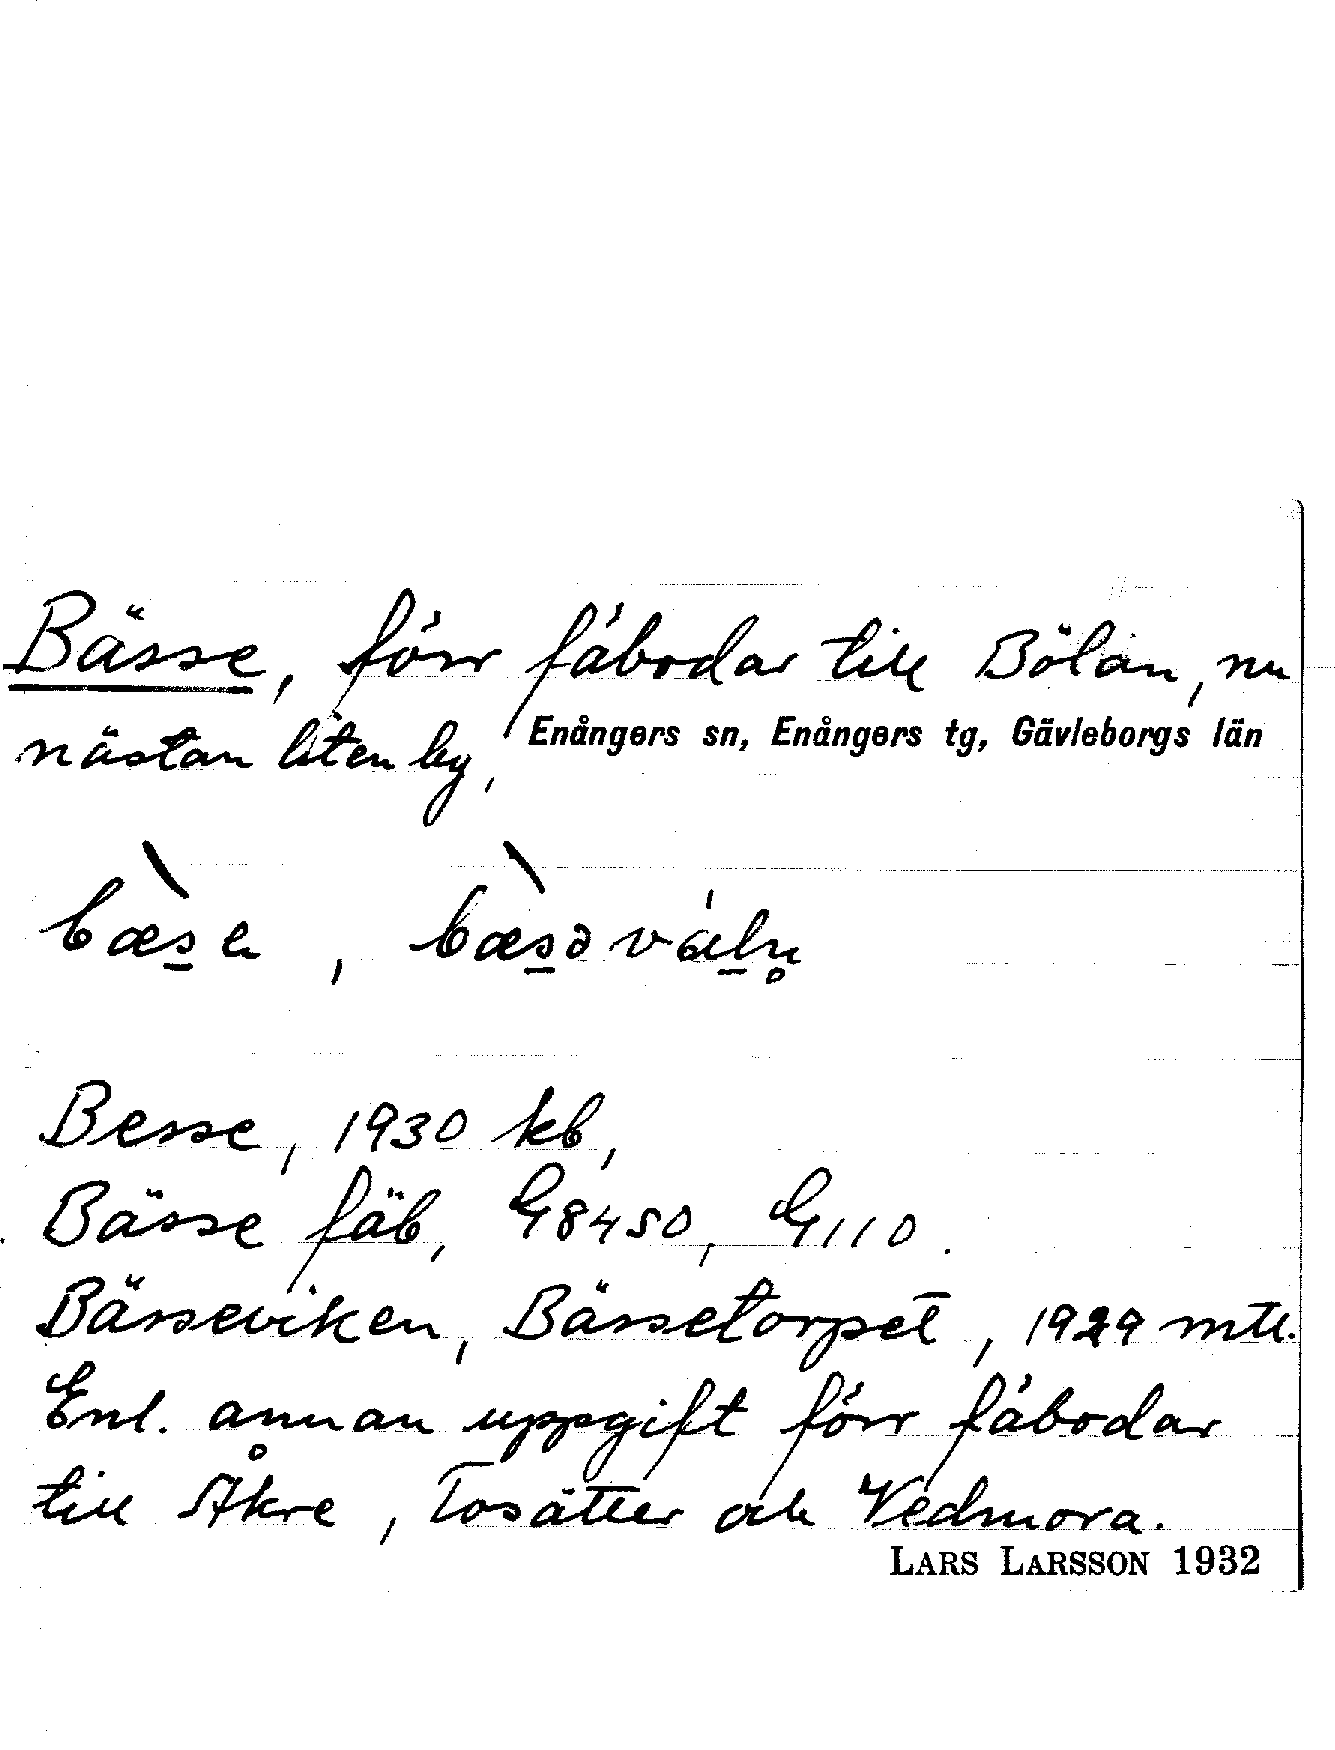 Bässe, förr fäbodar till Bölan, nu
nästan liten by, Enångers sn, Enångers tg, Gävleborgs län
Besse, 1930 kb,
Bässe fäb, G8450, G110.
Bässeviken, Bässetorpet, 1929 mtl.
Enl. annan uppgift förr fäbodar
till Åkre, Tosätter och Vedmora.
LARS LARSSON 1932